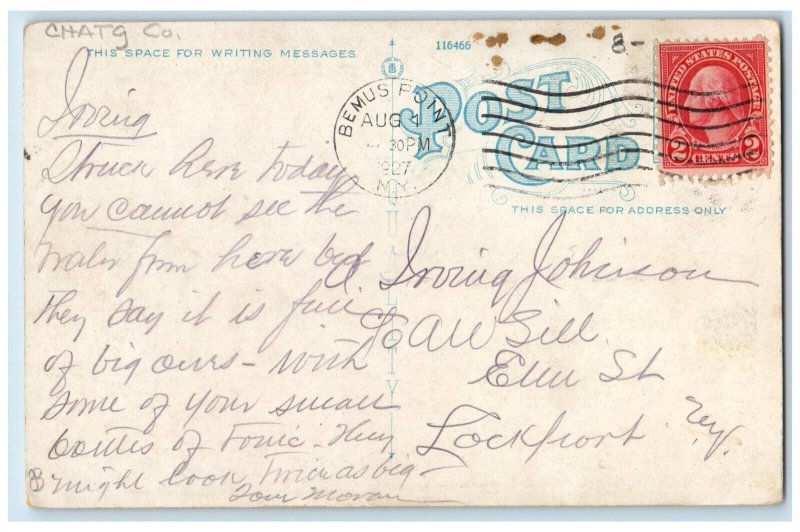 CHATQ Co.
THIS SPACE FOR WRITING MESSAGES
116466
8-
POST CARD
THIS SPACE FOR ADDRESS ONLY
BEMUS POINT
AUG 1
30PM
1927
N.Y.
UNITED STATES POSTAGE
2 CENTS 2
QUALITY
Irving
Struck here today
You cannot see the
water from here but
they say it is full
of big ones - with
some of your small
bottles of Tonic - they
might look twice as big -
Tom Moran
8
Irving Johnson
Gill
Elm St
Lockport N.Y.